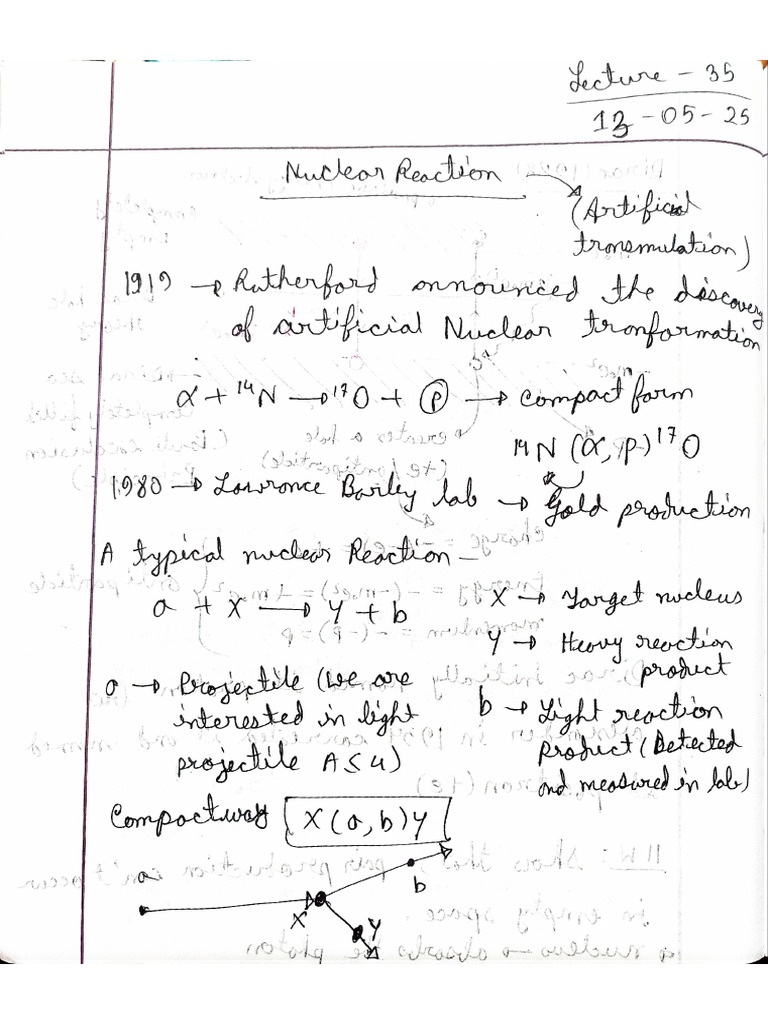 Lecture - 35
13-05-25
Nuclear Reaction
(Artificial
transmulation)
1919 → Rutherford announced the discovery
of artificial Nuclear tronformation
α + ¹⁴N → ¹⁷O + p → compact form
¹⁴N (α, p) ¹⁷O
1980 → Lawronce Barley lab → Gold production
A typical nuclear Reaction -
a + X → Y + b
X → Target nucleus
Y → Heavy reaction
product
a → Projectile (we are
interested in light
projectile A ≤ 4)
b → Light reaction
Product (Detected
and measured in lab)
Compact way X(a, b)Y
a
b
X
Y